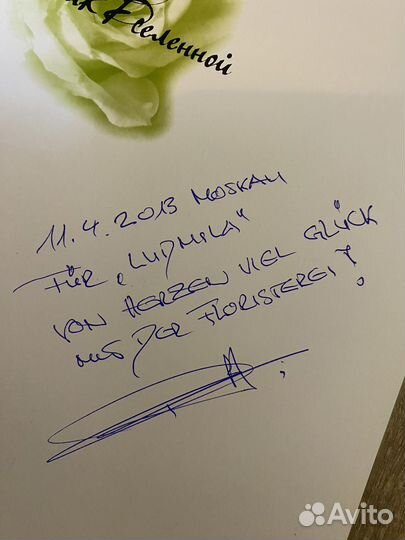 Вселенной
11.4.2013 MOSKAU
FÜR „LUDMILA“
VON HERZEN VIEL GLÜCK
MIT DER FLORISTEREI!
Avito